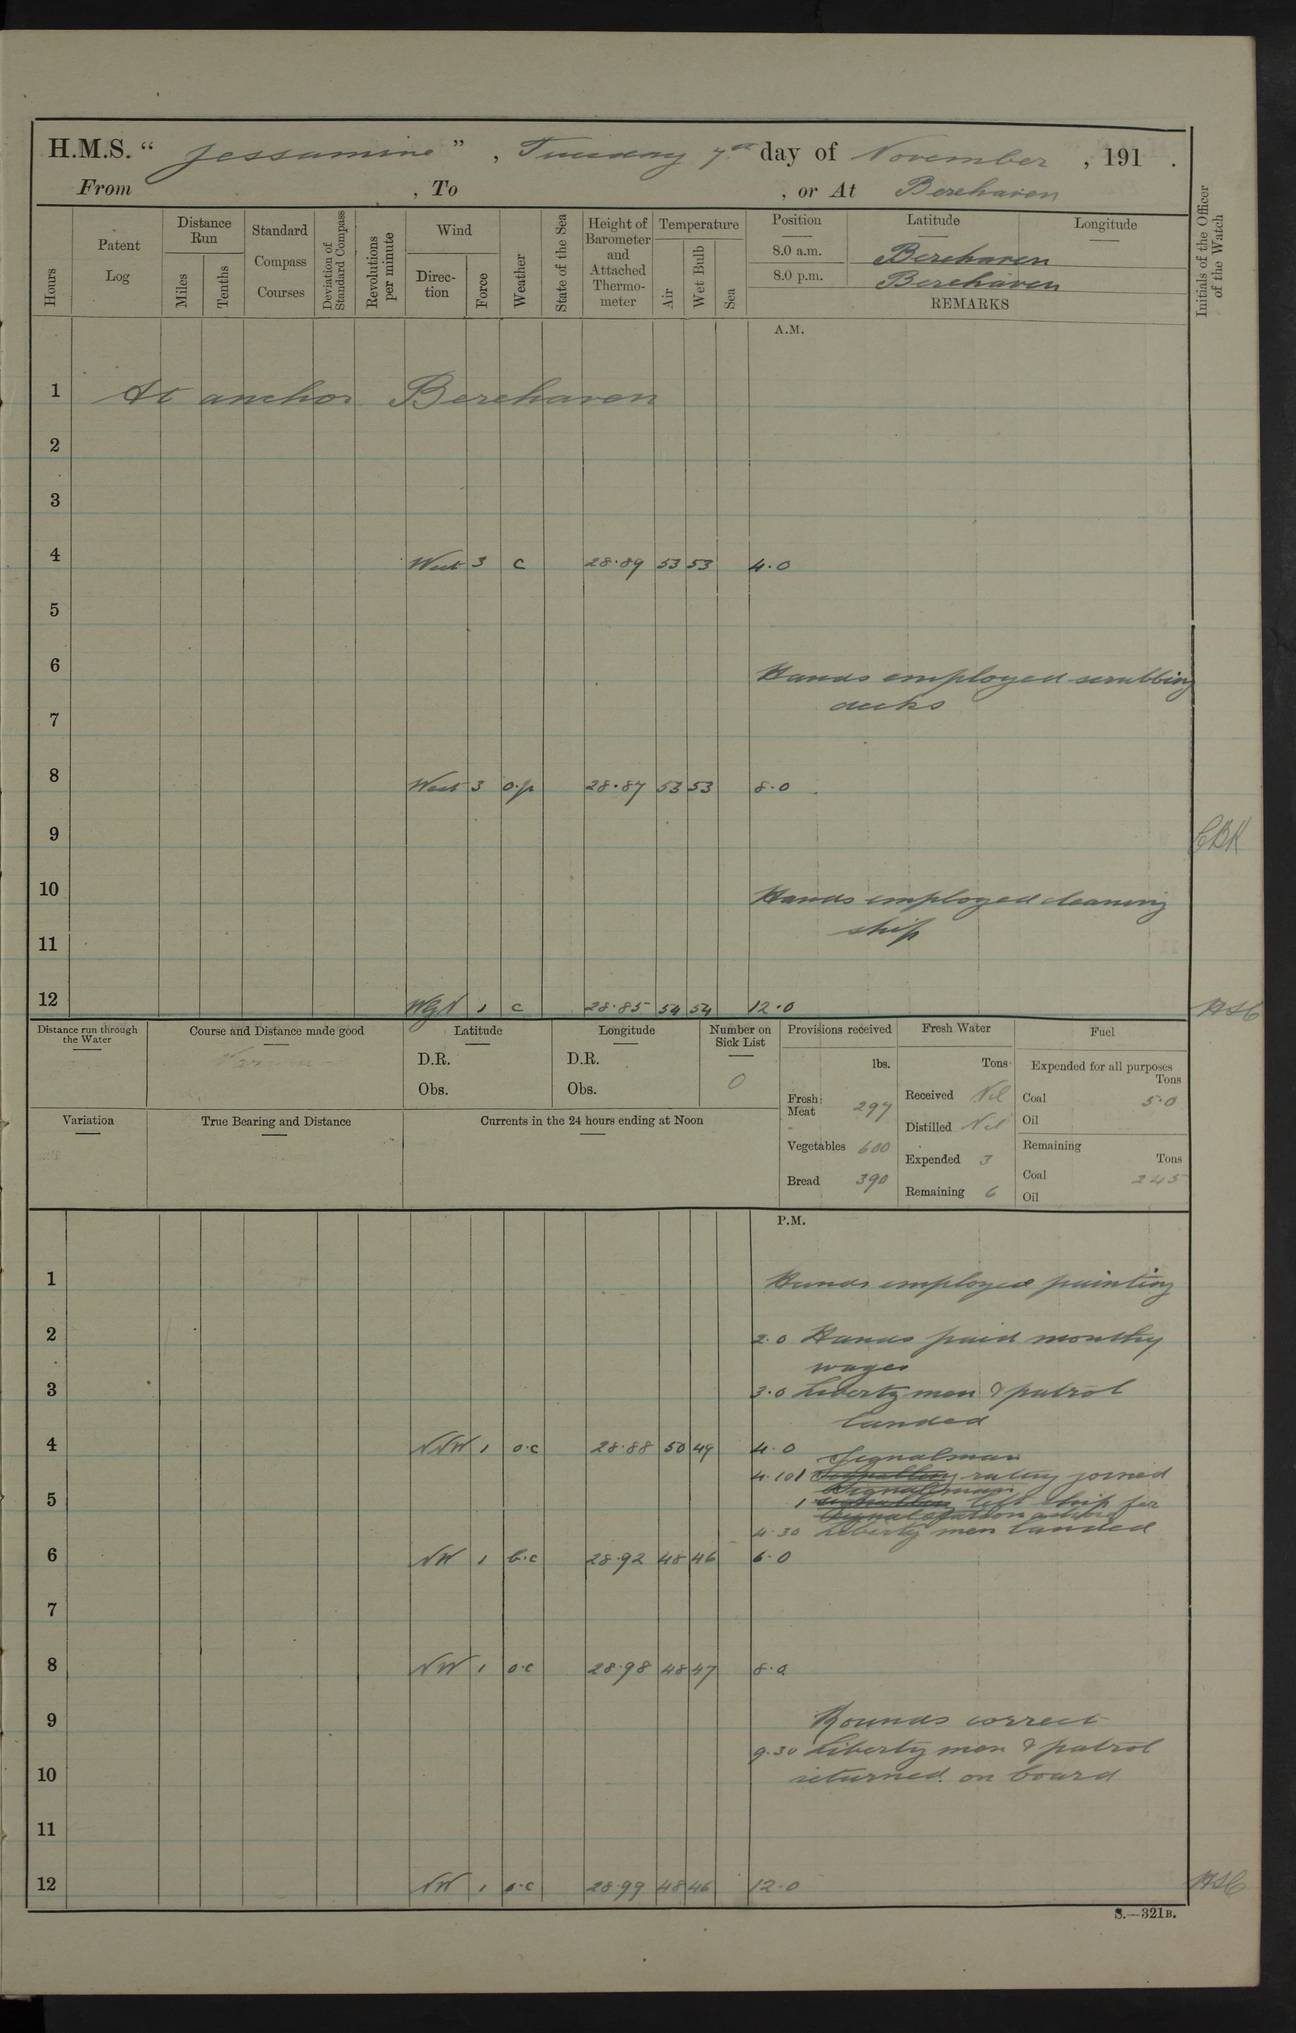 H.M.S. " Jessamine " , Tuesday 7th day of November , 191 .
From , To , or At Berehaven
Hours
Patent Log
Distance Run
Miles
Tenths
Standard Compass Courses
Deviation of Standard Compass
Revolutions per minute
Wind
Direction
Force
Weather
State of the Sea
Height of Barometer and Attached Thermometer
Temperature
Air
Wet Bulb
Sea
Position Latitude Longitude
8.0 a.m. Berehaven
8.0 p.m. Berehaven
REMARKS
Initials of the Officer of the Watch
A.M.
1 At anchor Berehaven
2
3
4 West 3 c 28.89 53 53 4.0
5
6 Hands employed scrubbing
decks
7
8 West 3 o.p 28.87 53 53 8.0
9 CBK
10 Hands employed cleaning
ship
11
12 WbyN 1 c 28.85 54 54 12.0
Distance run through the Water
Course and Distance made good
Latitude
D.R.
Obs.
Longitude
D.R.
Obs.
Number on Sick List
0
Variation
True Bearing and Distance
Currents in the 24 hours ending at Noon
Provisions received
lbs.
Fresh Meat 297
Vegetables 600
Bread 390
Fresh Water
Tons
Received Nil
Distilled Nil
Expended 3
Remaining 6
Fuel
Expended for all purposes
Tons
Coal 5.0
Oil
Remaining
Tons
Coal 245
Oil
P.M.
1 Hands employed painting
2 2.0 Hands paid monthly
wages
3 3.0 Liberty men & patrol
landed
4 NNW 1 o.c 28.88 50 49 4.0
Signalman
4.10 1 rating joined
Signalman
5 1 left ship for
4.30 Liberty men landed
6 NW 1 b.c 28.92 48 46 6.0
7
8 NW 1 o.c 28.98 48 47 8.0
9 Rounds correct
9.30 Liberty men & patrol
10 returned on board
11
12 NW 1 o.c 28.99 48 46 12.0
S.—321B.